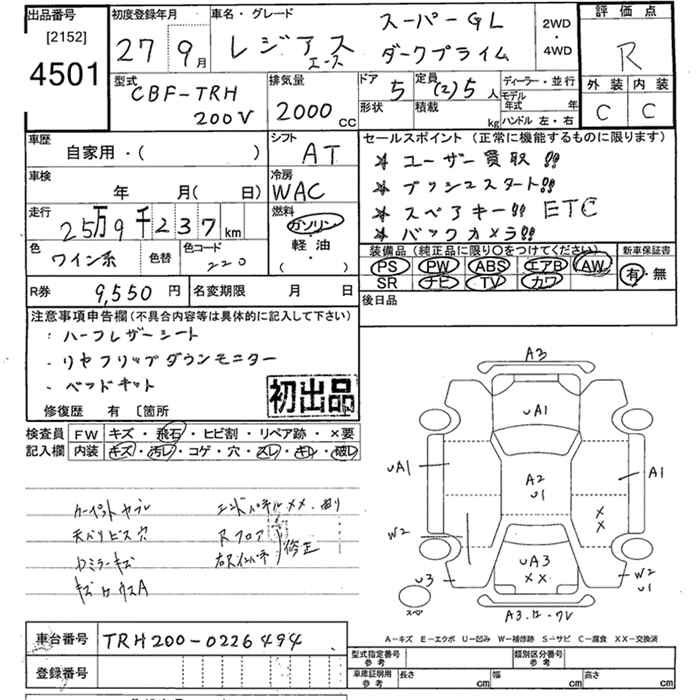 出品番号 [2152] 4501
初度登録年月 27 9月
車名・グレード レジアスエース スーパーGL ダークプライム
2WD・4WD
評価点 R
外装 内装
C C
型式 CBF-TRH 200V
排気量 2000 cc
ドア 5 定員 (2)5人
形状 積載 kg
ディーラー・並行
モデル年式 年
ハンドル 左・右
車歴 自家用・( )
シフト AT
車検 年 月( 日)
冷房 WAC
走行 25万9千237 km
燃料 ガソリン・軽油・( )
色 ワイン系 色替 色コード 220
セールスポイント (正常に機能するものに限ります)
ユーザー買取!!
プッシュスタート!!
スペアキー!! ETC
バックカメラ!!
装備品 (純正品に限り○をつけてください) 新車保証書
PS PW ABS エアB AW 有・無
SR ナビ TV カワ
R券 9,550円 名変期限 月 日
後日品
注意事項申告欄(不具合内容等は具体的に記入して下さい)
・ハーフレザーシート
・リヤフリップダウンモニター
・ベッドキット
初出品
修復歴 有 〔箇所
検査員 FW キズ・飛石・ヒビ割・リペア跡・×要
記入欄 内装 キズ・汚レ・コゲ・穴・スレ・キレ・破レ
カーペットヤブレ エンドパネルXX、曲り
天バリビス穴 Rフロア
修正
A3
UA1
UA1 A2 U1 A1
X X
W2
U3 UA3 XX W2 U1
スペア
A-キズ E-エクボ U-凹み W-補修跡 S-サビ C-腐食 XX-交換済
車台番号 TRH200-0226494
登録番号
型式指定番号 参考 類別区分番号 参考
車庫証明用 参考 長さ cm 幅 cm 高さ cm